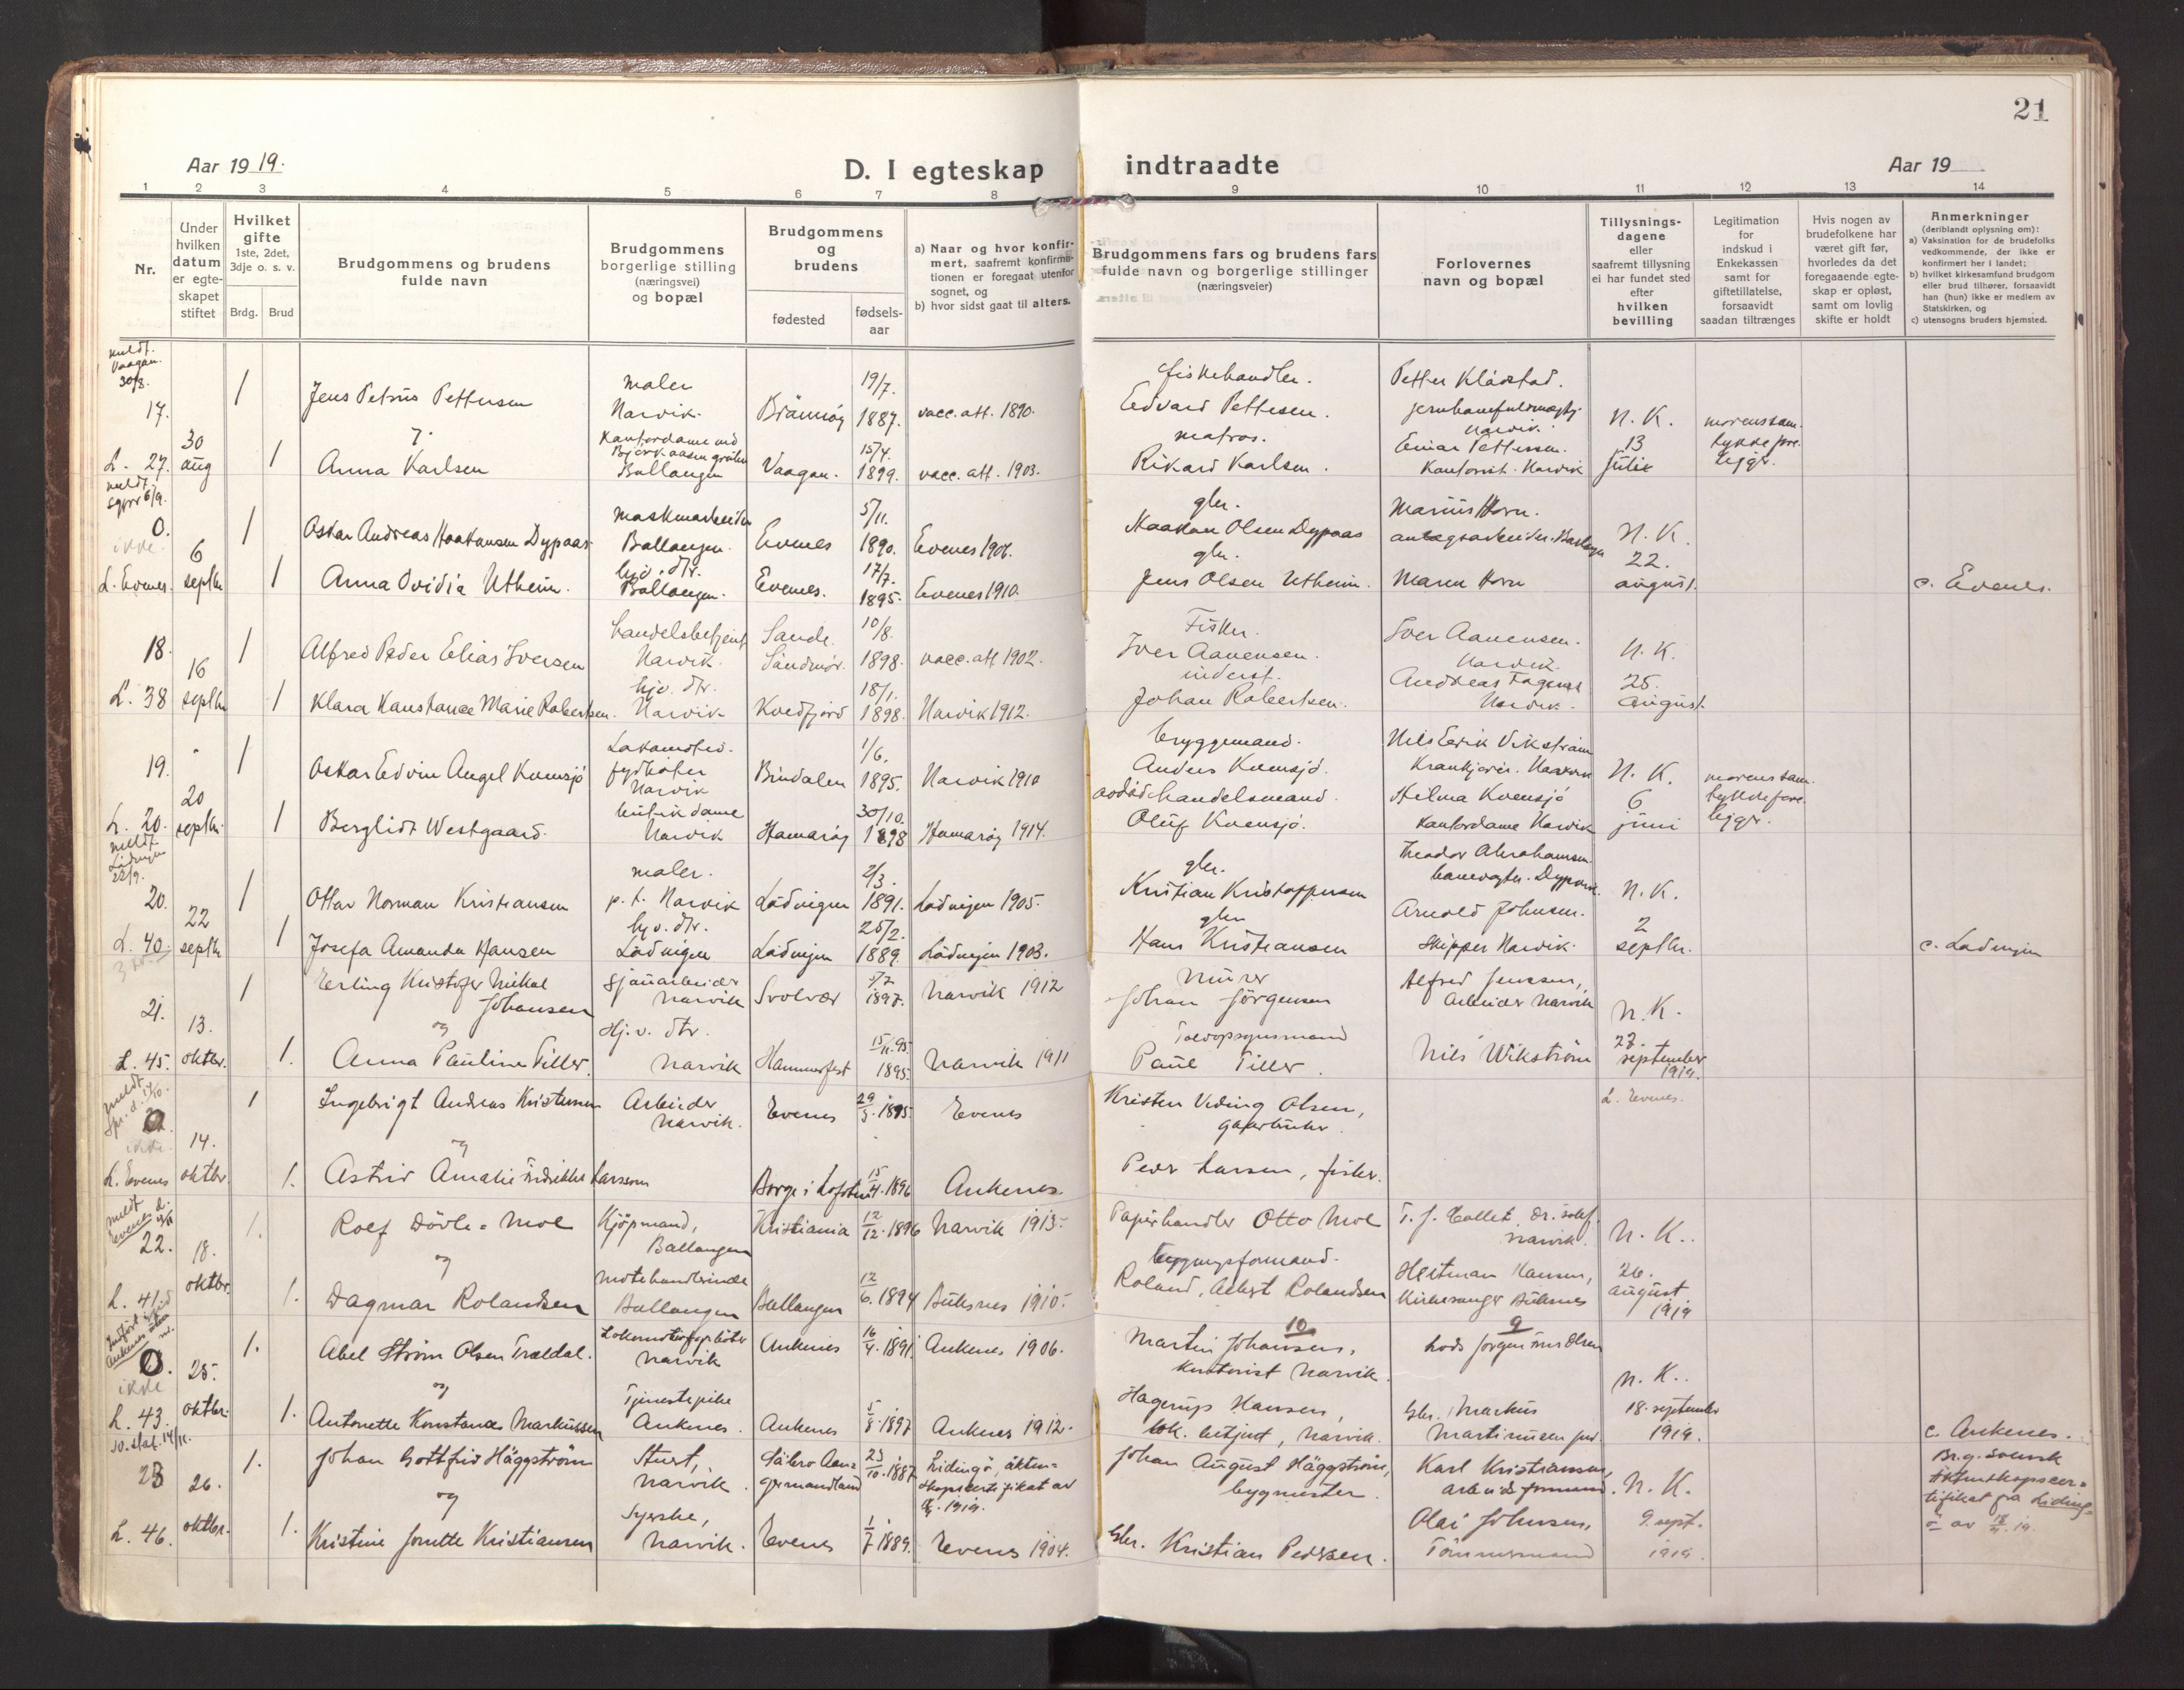 21
Aar 1919.
D. I egteskap indtraadte
Aar 19
1 2 3 4 5 6 7 8 9 10 11 12 13 14
Nr.
Under hvilken datum er egte-skapet stiftet
Hvilket gifte 1ste, 2det, 3dje o. s. v.
Brdg. Brud
Brudgommens og brudens fulde navn
Brudgommens borgerlige stilling (næringsvei) og bopæl
Brudgommens og brudens
fødested
fødsels-aar
a) Naar og hvor konfir-mert, saafremt konfirma-tionen er foregaat utenfor sognet, og
b) hvor sidst gaat til alters.
Brudgommens fars og brudens fars fulde navn og borgerlige stillinger (næringsveier)
Forlovernes navn og bopæl
Tillysnings-dagene eller saafremt tillysning ei har fundet sted efter hvilken bevilling
Legitimation for indskud i Enkekassen samt for giftetillatelse, forsaavidt saadan tiltrænges
Hvis nogen av brudefolkene har været gift før, hvorledes da det foregaaende egte-skap er opløst, samt om lovlig skifte er holdt
Anmerkninger (deriblandt oplysning om):
a) Vaksination for de brudefolks vedkommende, der ikke er konfirmert her i landet;
b) hvilket kirkesamfund brudgom eller brud tilhører, forsaavidt han (hun) ikke er medlem av Statskirken, og
c) utensogns bruders hjemsted.
meldt. Vaagan. 30/8.
17. 1 Jens Petrus Pettersen maler Narvik. 19/7. 1887. vacc. att. 1890. fiskehandler. Edvard Pettersen. Petter Klådstad. Narvik. N. K.
L. 27. 30 aug 1 Anna Karlsen Kontordame ved Ballangen Vaagan. 15/4. 1899. vacc. att. 1903. matros. Rikard Karlsen. Einar Pettersen. Kontorist. Narvik 13 juli
meldt 6/9.
0. ikke. 1 Oskar Andreas Haakonsen Dypaas Ballangen. Evenes 5/11. 1890. Evenes 1906. gbr. Haakon Olsen Dypaas Marius Horn. N. K.
L. Evenes. 6 septbr 1 Anna Ovidia Utheim. hjv. dtr. Ballangen. Evenes. 17/7. 1895. Evenes 1910. gbr. Jens Olsen Utheim. Maren Horn 22. august. c. Evenes.
18. 1 Alfred Peder Elias Iversen handelsbetjent Narvik. Sande. Søndmør. 10/8. 1898. vacc. att 1902. Fisker. Iver Aanensen. Iver Aanensen. Narvik. N. K.
L. 38 16 septbr 1 Klara Konstance Marie Robertsen. hjv. dtr. Narvik Kvedfjord 18/1. 1898. Narvik 1912. inderst. Johan Robertsen. Andreas Narvik. 25. august
19. 1 Oskar Edvin Angel Kvensjø Lokomotiv. fyrbøter Narvik Bindalen 1/6. 1895. Narvik 1910 bryggemand. Anders Kvensjø. Nils Erik Vikstrøm N. K.
L. 20. 20 septbr. 1 Berglidt Westgaard. butikdame Narvik Hamarøy 30/10. 1898 Hamarøy 1914. handelsmand. Oluf Kvensjø. Helma Kvensjø Kontordame Narvik 6 juni
meldt Lødingen 22/9.
20. 1 Ottar Norman Kristiansen maler. p. t. Narvik Lødingen 2/3. 1891. Lødingen 1905. gbr. Kristian Kristoffersen Theodor Abrahamsen. banevogter. N. K.
L. 40. 22 septbr 1 Josefa Amanda Hansen hjv. dtr. Lødingen Lødingen 25/2. 1889. Lødingen 1903. gbr Hans Kristiansen Arnold Johnsen. skipper Narvik. 2 septbr. c. Lødingen
21. 1 Erling Kristofer Mikal Johansen Sjauarbeider Narvik Svolvær 1897. Narvik 1912 Murer Johan Jørgensen Alfred Jenssen, Arbeider Narvik N. K.
L. 45. 13. oktbr. 1. og Anna Pauline Tiller. Hj. v. dtr. Narvik Hammerfest 15/11. 95. 1895. Narvik 1911 Toldopsynsmand Paul Tiller. Nils Wikstrøm 22. september 1919.
meldt
ikke. 1 Ingebrigt Andreas Kristensen Arbeider Narvik. Evenes 29/5. 1895 Evenes Kristen Viding Olsen, gaardbruker. L. Evenes.
L. Evenes 14. oktbr. 1. og Astrid Amalie Fredrikke Larssen Borge i Lofoten 15/4. 1896 Ankenes. Peder Larsen, fisker.
meldt Evenes
22. 1. Rolf Døvle-Moe Kjøpmand, Ballangen Kristiania 12/12. 1896 Narvik 1913. Papirhandler Otto Moe T. J. Collet, Narvik. N. K..
L. 41. 18. oktbr. 1. og Dagmar Rolandsen Motehandlerinde Ballangen Ballangen 12/6. 1894 Buksnes 1910. bygningsformand. Roland, Albert Rolandsen Heitman Hansen, Kirkesanger Buksnes 26. august 1919
0. ikke 1. Abel Strøm Olsen Trældal. Lokomotivfyrbøter Narvik Ankenes 16/4. 1891 Ankenes 1906. 10 Martin Johansen, Kontorist Narvik. 9 N. K..
L. 43. 25. oktbr. 1. og Antonette Konstance Markussen Tjenestepike Ankenes. Ankenes 5/8. 1897 Ankenes 1912. Hagerup Hansen, lok. betjent, Narvik. Gbr. Markus Martinusen 18. september 1919. c. Ankenes.
10. stat. 14/11.
23 1. Johan Gottfrid Häggström Stuert, Narvik. 23/10. 1887 Lidingö, äkten-skapscertifikat av 1919. Johan August Häggström, bygmester. Karl Kristiansen, arbeidsformand. N. K. Br.g. svensk äktenskapscer-tifikat fra Liding-ö av
L. 46. 26. oktbr. 1. og Kristine Jonette Kristiansen Syerske, Narvik. Evenes 1/7 1889. Evenes 1904. Gbr. Kristian Pedersen. Olai Johnsen, Tømmermand 9. sept. 1919.